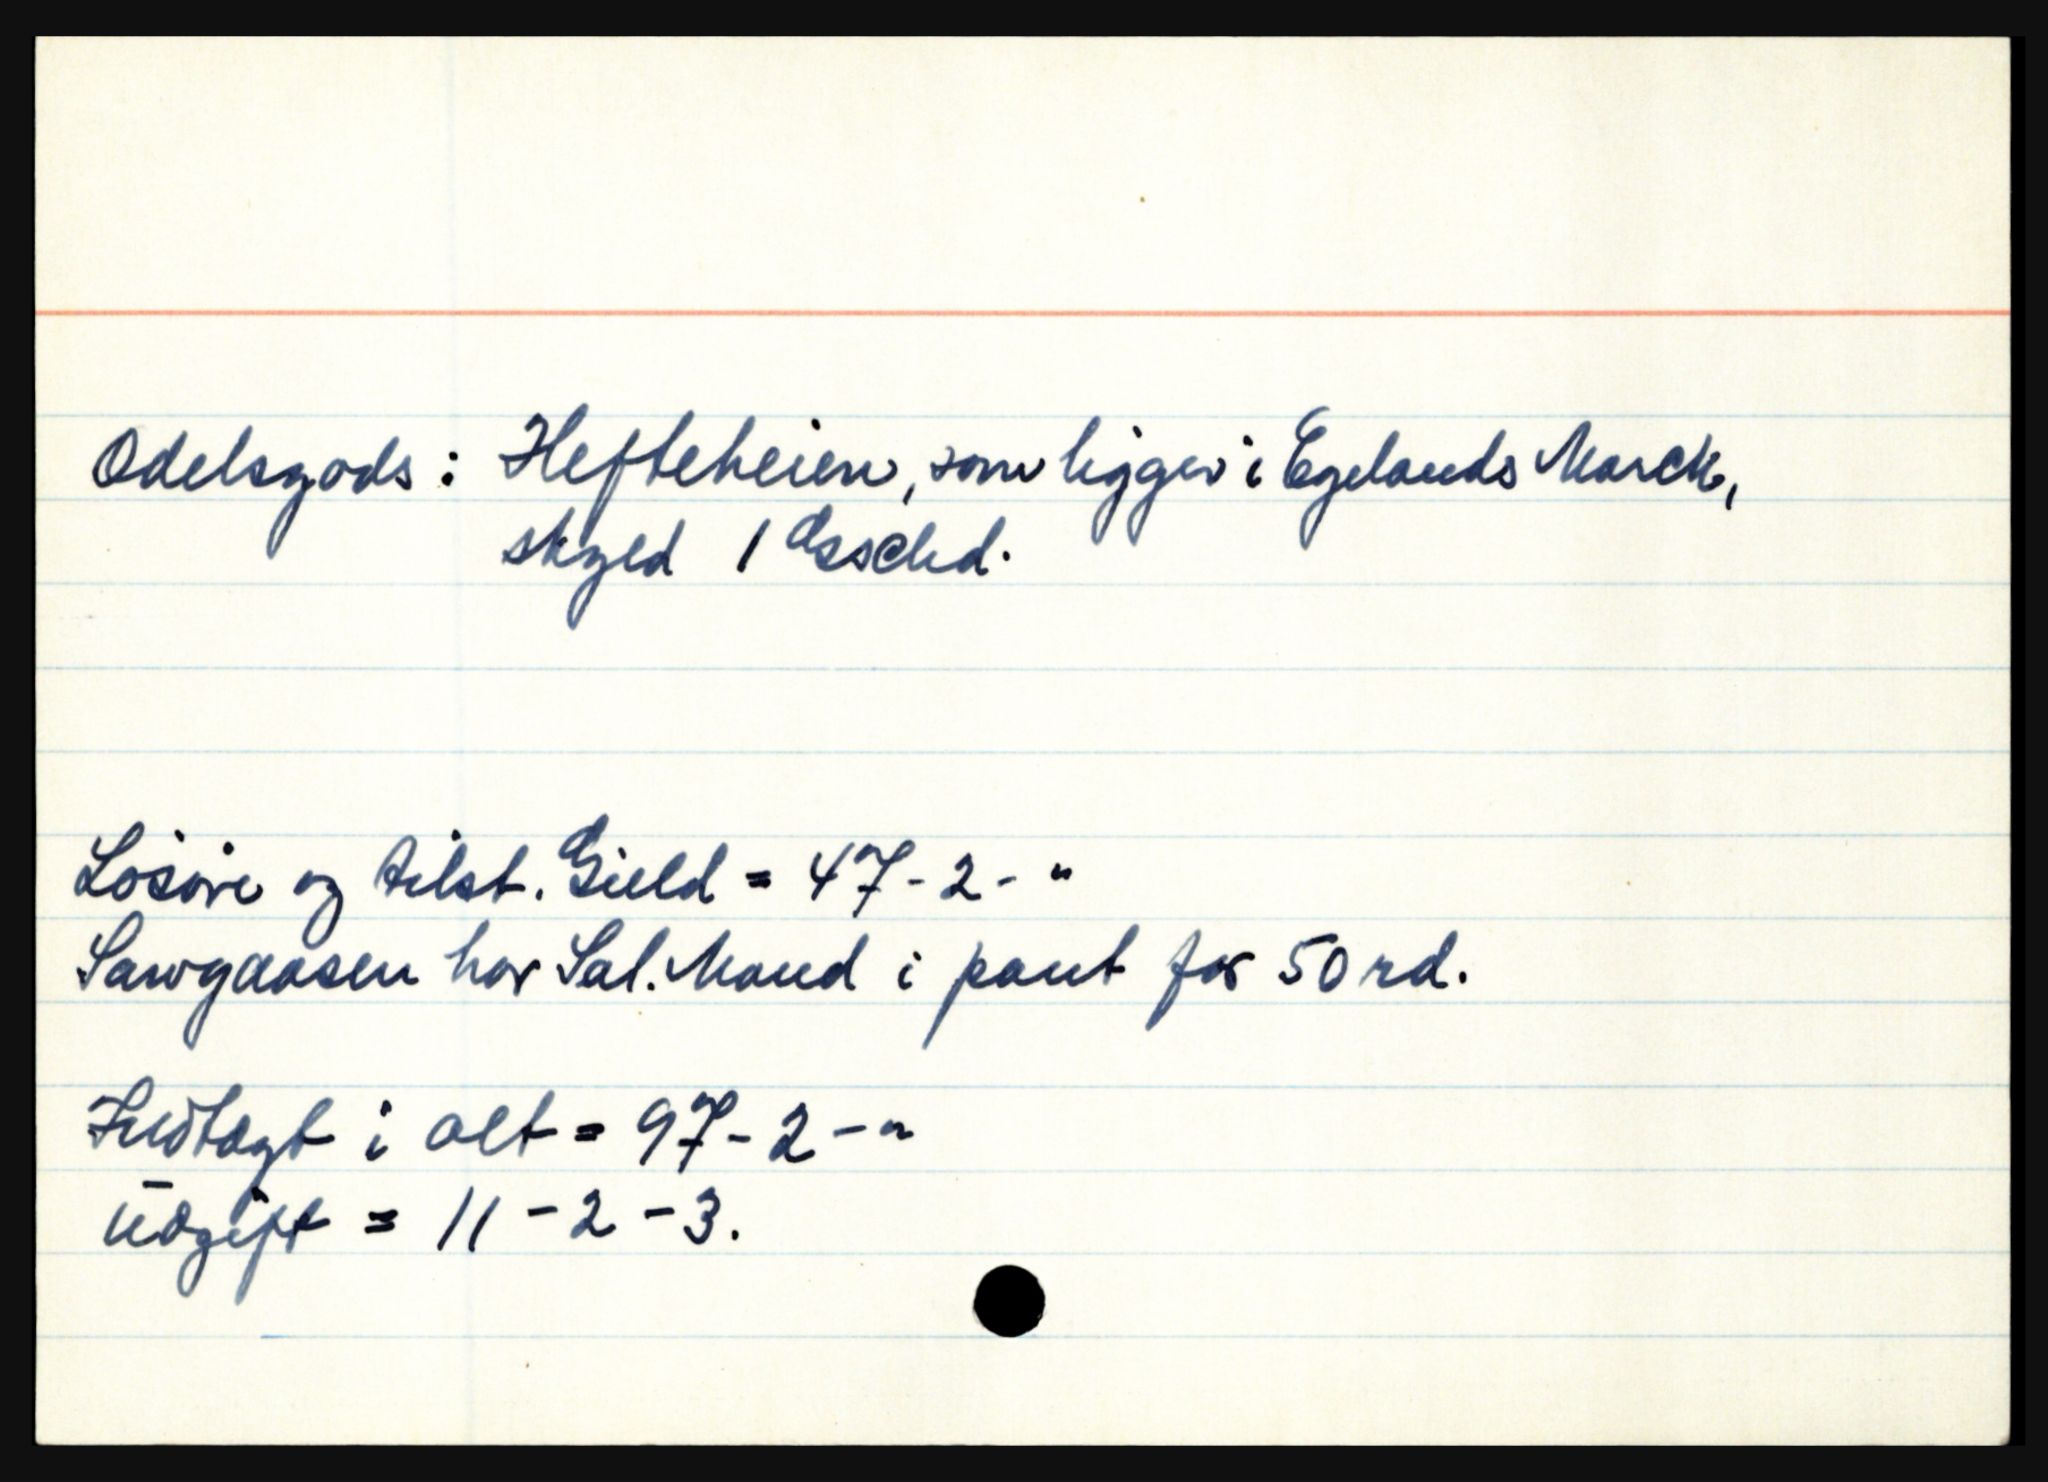 Odelsgods: Hefteheien, som ligger i Egelands Marck,
skyld 1 Gsschd.
Losøre og tilst. Gield = 47-2-"
Sawgaasen har Sal. Mand i pant for 50 rd.
Indtægt i alt = 97-2-"
Udgift = 11-2-3.